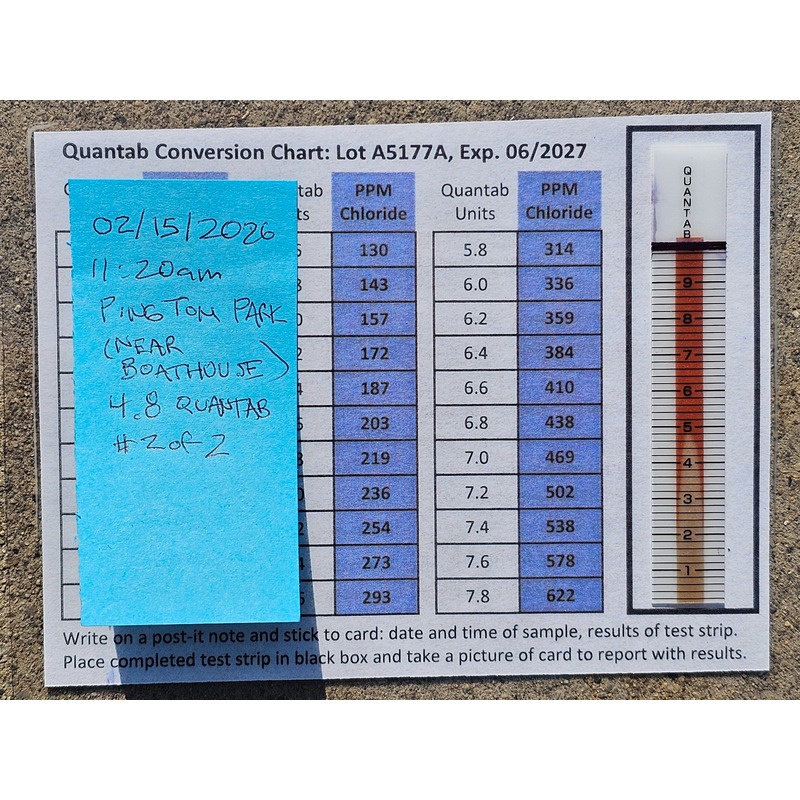 Quantab Conversion Chart: Lot A5177A, Exp. 06/2027
02/15/2026
11:20am
PING TOM PARK
(NEAR
BOATHOUSE)
4.8 QUANTAB
#2 of 2
PPM Quantab PPM
Chloride Units Chloride
130 5.8 314
143 6.0 336
157 6.2 359
172 6.4 384
187 6.6 410
203 6.8 438
219 7.0 469
236 7.2 502
254 7.4 538
273 7.6 578
293 7.8 622
QUANTAB
9
8
7
6
5
4
3
2
1
Write on a post-it note and stick to card: date and time of sample, results of test strip.
Place completed test strip in black box and take a picture of card to report with results.